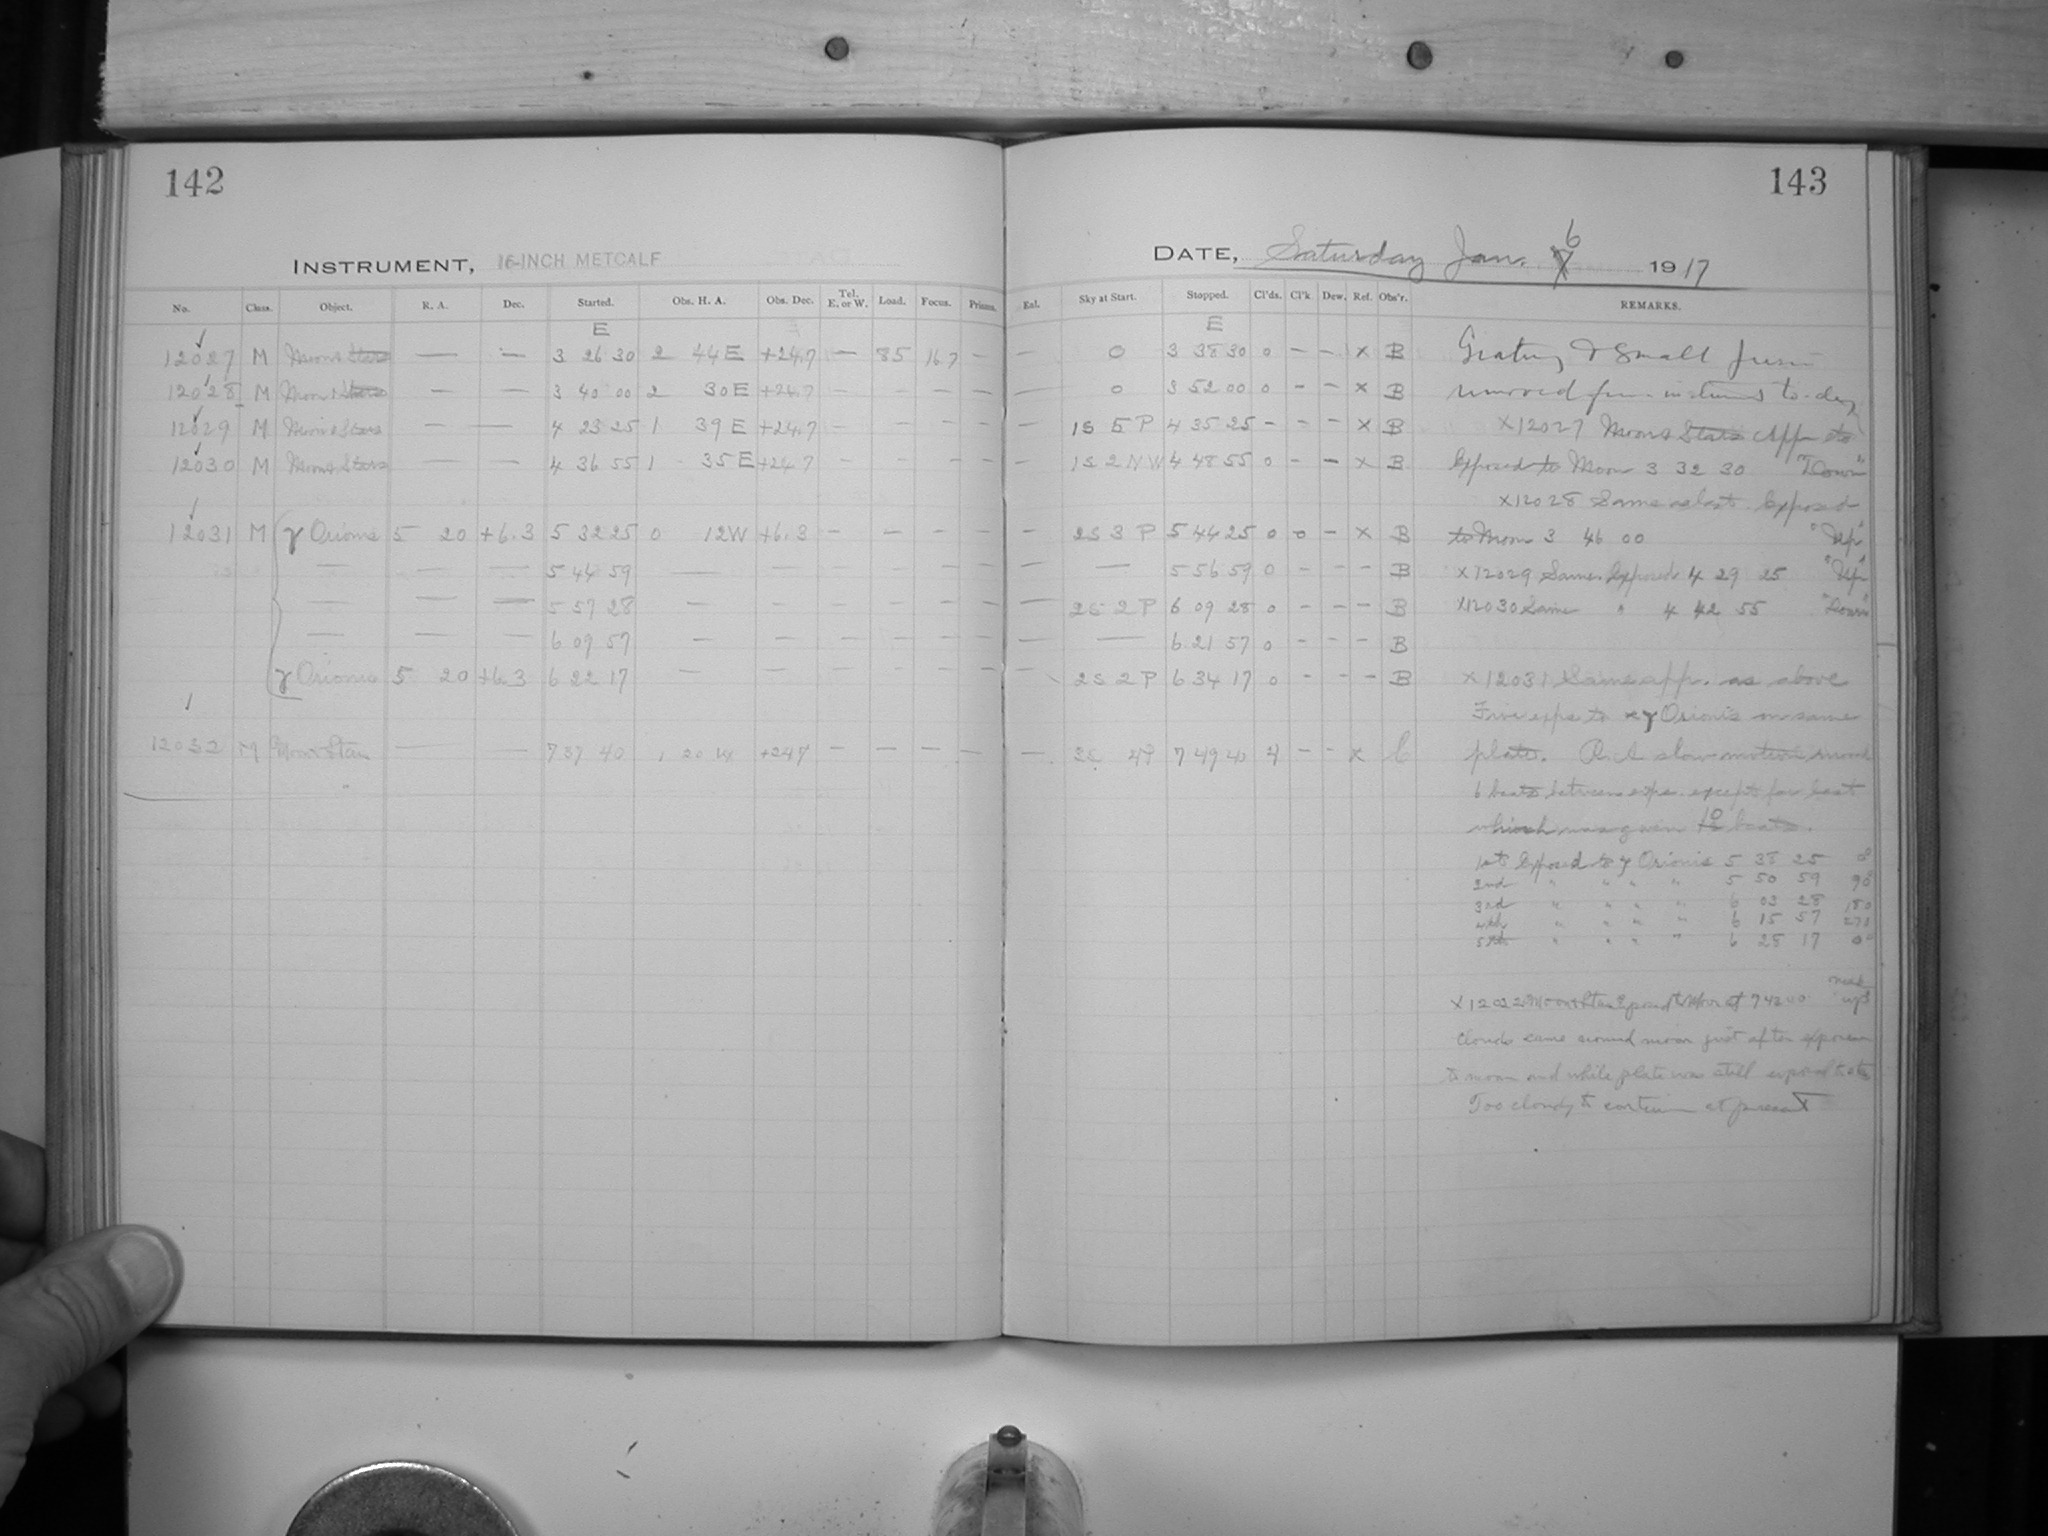 142
INSTRUMENT, 16-INCH METCALF
No. Class. Object. R. A. Dec. Started. Obs. H. A. Obs. Dec. Tel. E. or W. Load. Focus. Prisms.
E
12027 M Moon & Stars — — 3 26 30 2 44 E +24.7 — 85 16.7 —
12028 M Moon & Stars — — 3 40 00 2 30 E +24.7 — — — —
12029 M Moon & Stars — — 4 23 25 1 39 E +24.7 — — — —
12030 M Moon & Stars — — 4 36 55 1 35 E +24.7 — — — —
12031 M γ Orionis 5 20 +6.3 5 32 25 0 12 W +6.3 — — — —
— — — 5 44 59 — — — — — —
— — — 5 57 28 — — — — — —
— — — 6 09 57 — — — — — —
γ Orionis 5 20 +6.3 6 22 17 — — — — — —
12032 M Moon & Stars — — 7 37 40 1 20 W +24.7 — — — —
143
DATE, Saturday Jan. 6 1917
Eal. Sky at Start. Stopped. Cl'ds. Cl'k Dew. Ref. Obs'r. REMARKS.
E
— 0 3 38 30 0 — — x B
— 0 3 52 00 0 — — x B
— 1S 5 P 4 35 25 — — — x B
— 1S 2 NW 4 48 55 0 — — x B
— 2S 3 P 5 44 25 0 0 — x B
— — 5 56 59 0 — — — B
— 2S 2 P 6 09 28 0 — — — B
— — 6 21 57 0 — — B
2S 2 P 6 34 17 0 — — — B
— 2S 4P 7 49 40 4 — — x C
Grating & small
removed from to-day
x12027 Moon & Stars App to
Exposed to Moon 3 32 30 "Down"
x12028 Same as last. Exposed
to Moon 3 46 00 "Up"
x12029 Same. Exposed 4 29 25 "Up"
x12030 Same " 4 42 55 "Down"
x12031 Same app. as above
Five exps to γ Orionis on same
plate. R.A. slow motion moved
6 beats between exps. except for last
which was given 10 beats.
1st Exposed to γ Orionis 5 38 25 0°
2nd " " " " 5 50 59 90°
3rd " " " " 6 03 28 180
4th " " " " 6 15 57 271
5th " " " " 6 28 17 0°
x12032 Moon & Stars Exposed to Moon at 7 43 40 "up"
Clouds came around moon just after exposure
to moon and while plate was still exposed to
Too cloudy to continue at present